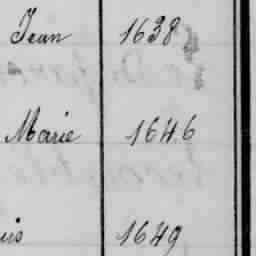 Jean 1638
Marie 1646
uis 1649